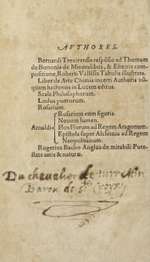 AVTHORES.
Bernardi Trevirensis responsio ad Thomam
de Bononia de Mineralibus, & Elixiris com-
positione, Roberti Vallensis Tabulis illustrata.
Liber de Arte Chimica incerti Authoris nũ-
quam hactenus in Lucem editus.
Scala Philosophorum.
Ludus puerorum.
Rosarium
Rosarium cum figuris.
Novum lumen.
Arnaldi Flos Florum ad Regem Aragonum.
Epistola super Alchimia ad Regem
Neapolitanum.
Rogerius Bacho Anglus de mirabili Pote-
state artis & naturæ.
Du chevalier de
Baron de